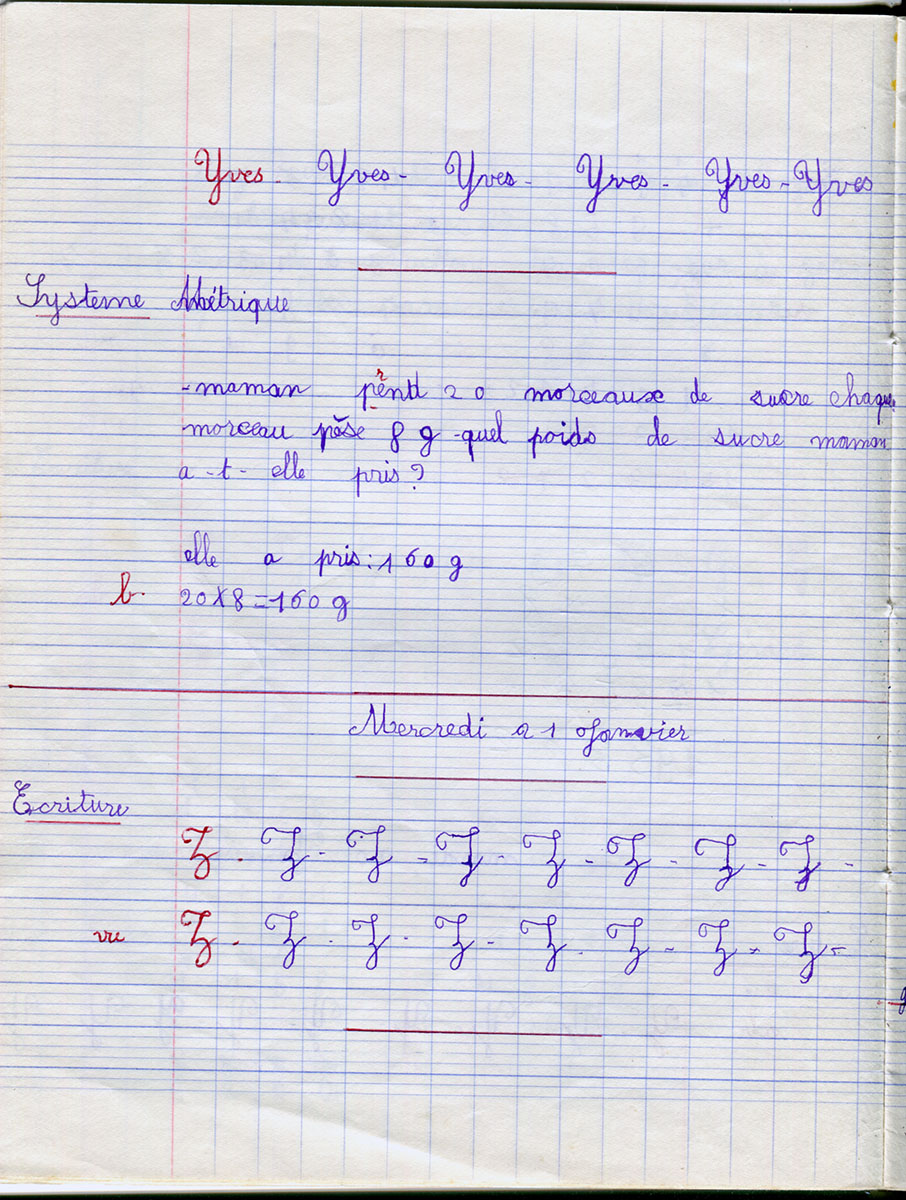 Yves - Yves - Yves - Yves - Yves - Yves
Systeme Métrique
-maman prend 20 morceaux de sucre chaque
morceau pèse 8 g -quel poids de sucre maman
a-t-elle pris?
elle a pris: 160 g
b. 20X8=160 g
Mercredi 21 Janvier
Ecriture
Z. Z - Z - Z - Z - Z - Z - Z -
vu Z. Z. Z. Z - Z. Z - Z - Z -